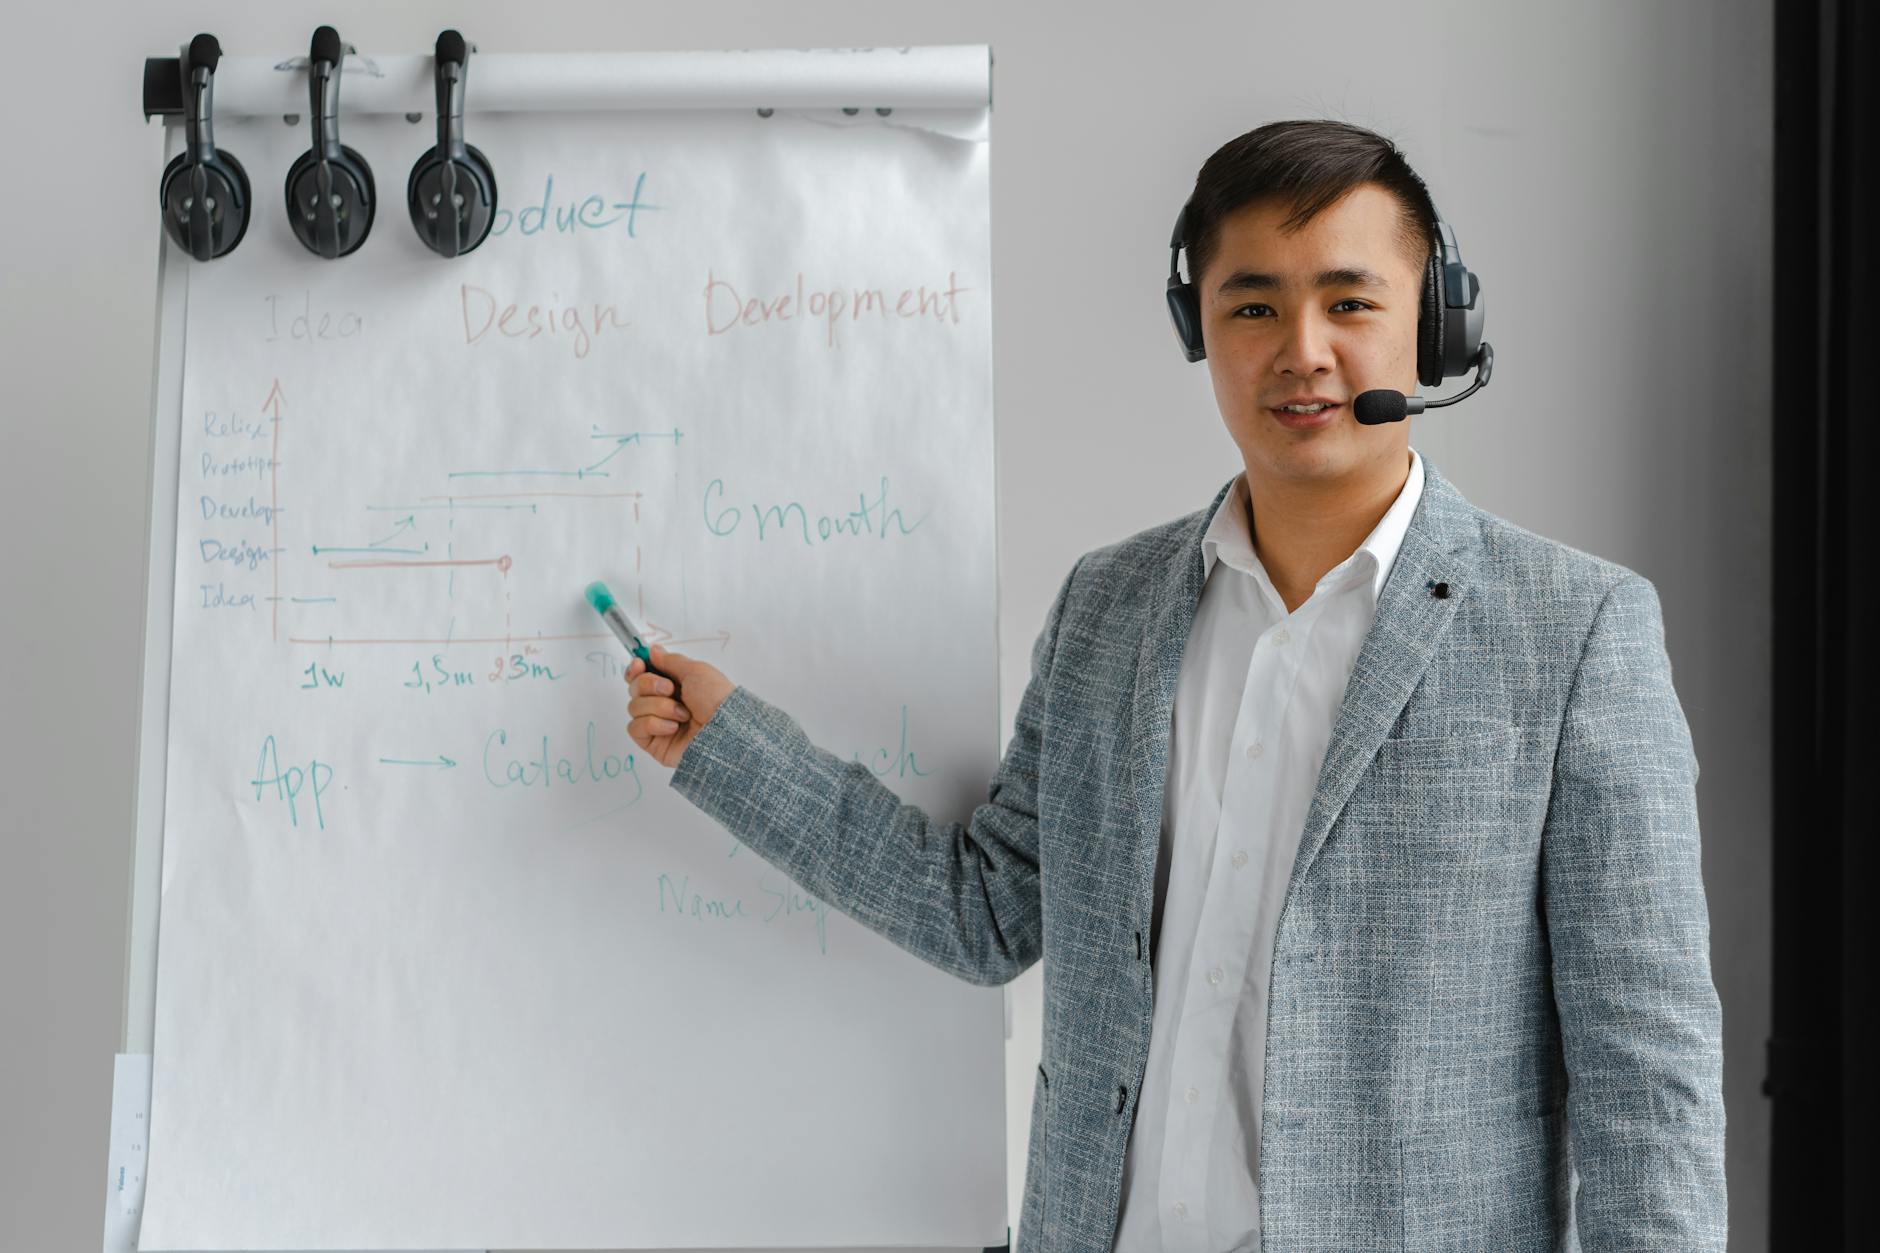 oduct
Idea Design Development
Relise
Prototipe
Develop
Design
Idea
6 month
1w 1,5m 2 3m
App. → Catalog
Name